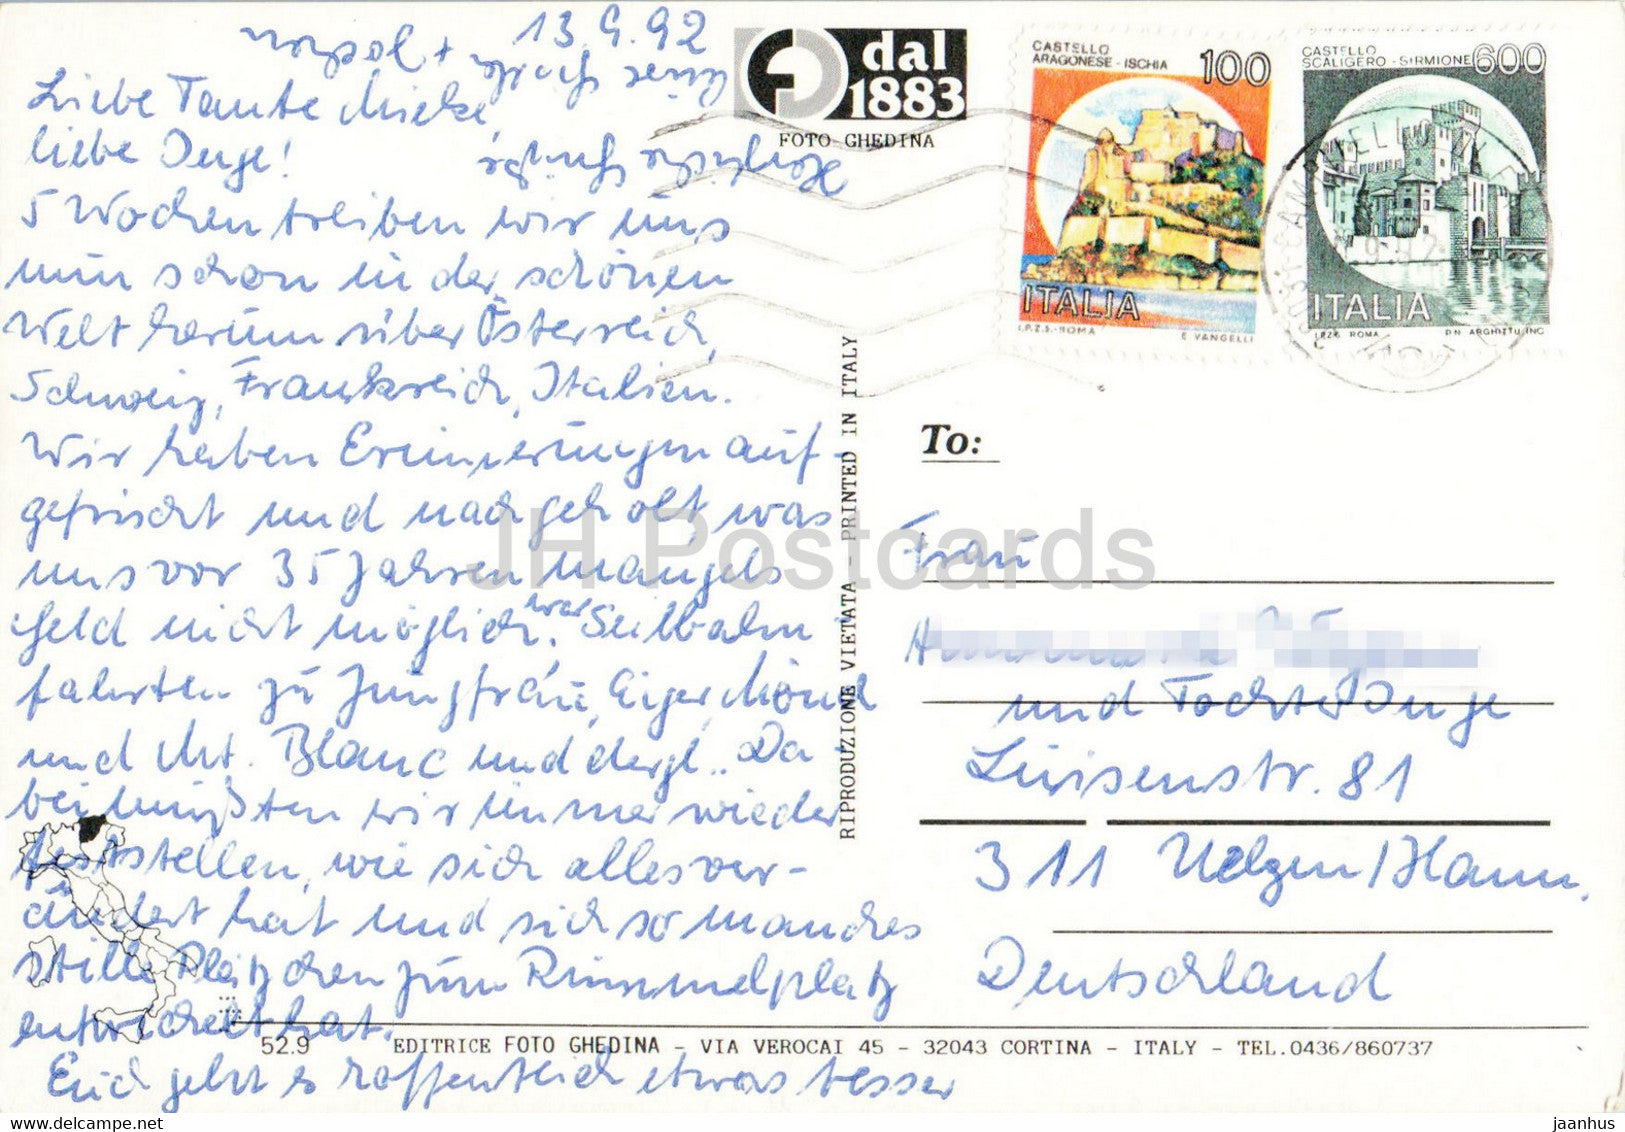 13.9.92
Liebe Tante Mieke,
liebe Inge!
5 Wochen treiben wir uns
nun schon in der schönen
Welt herum über Österreich,
Schweiz, Frankreich, Italien.
Wir haben Erinnerungen auf-
gefrischt und nachgeholt was
uns vor 35 Jahren mangels
Geld nicht möglich war. Seilbahn
fahrten zu Jungfrau, Eiger, Mönch
und Mt. Blanc und dergl.. Da
bei mußten wir immer wieder
feststellen, wie sich alles ver-
ändert hat und sich so manches
stille Plätzchen zum Rummelplatz
entwickelt hat.
Euch geht es hoffentlich etwas besser
Herzliche Grüße
dal
1883
FOTO GHEDINA
CASTELLO
ARAGONESE - ISCHIA
100
ITALIA
I.P.Z.S. - ROMA
E VANGELLI
CASTELLO
SCALIGERO - SIRMIONE
600
ITALIA
I.P.Z.S. ROMA
P.N. ARGHITTU INC.
RIPRODUZIONE VIETATA - PRINTED IN ITALY
To:
Frau
und Tochter Inge
Luisenstr. 81
311 Uelzen/Hann.
Deutschland
52.9
EDITRICE FOTO GHEDINA - VIA VEROCAI 45 - 32043 CORTINA - ITALY - TEL.0436/860737
JH Postcards
jaanhus